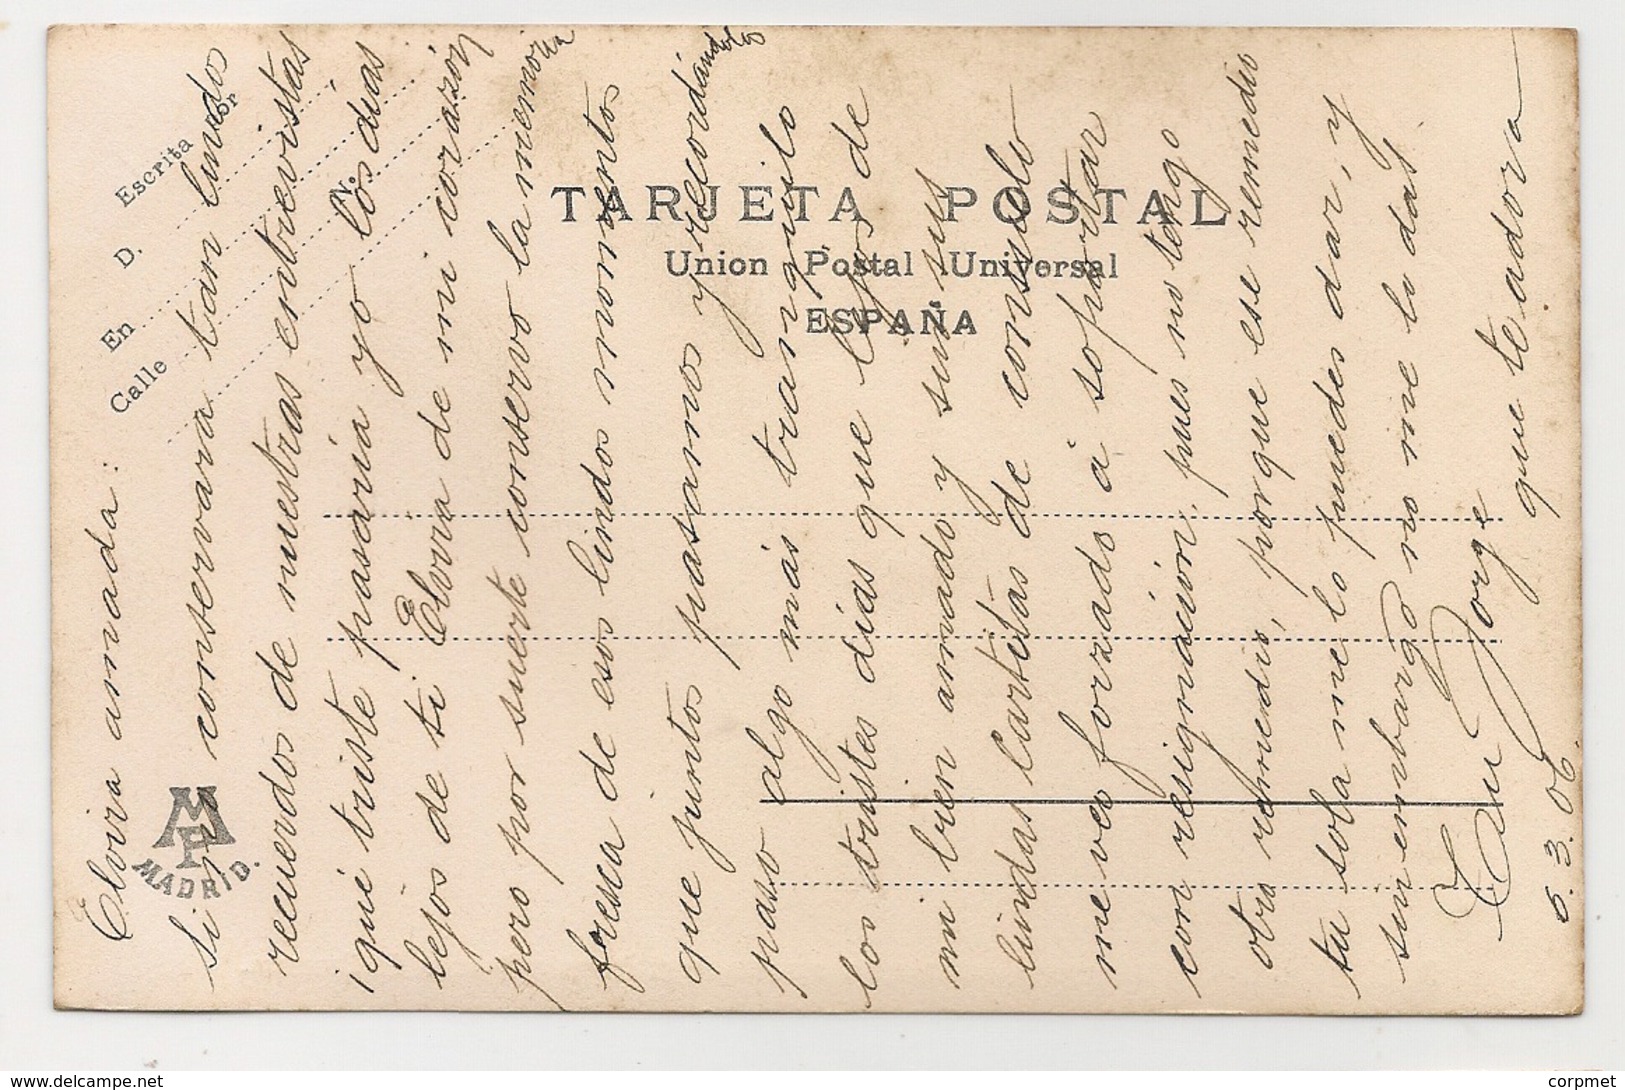 Escrita por
D.
En
Calle
N.º
TARJETA POSTAL
Union Postal Universal
ESPAÑA
MP
MADRID.
Elvira amada:
Si no conservara tan lindos
recuerdos de nuestras entrevistas
¡qué triste pasaría yo los días
lejos de ti Elvira de mi corazón
pero por suerte conservo la memoria
fresca de esos lindos momentos
que juntos pasamos y recordándolos
paso algo más tranquilo
los tristes días que lejos de
mi bien amado y sin sus
lindas cartitas de consuelo
me veo forzado á soportar
con resignación, pues no tengo
otro remedio, porque ese remedio
tu sola me lo puedes dar, y
sin embargo no me lo das
Tu Jorge
que te adora
6.3.06.
www.delcampe.net
corpmet